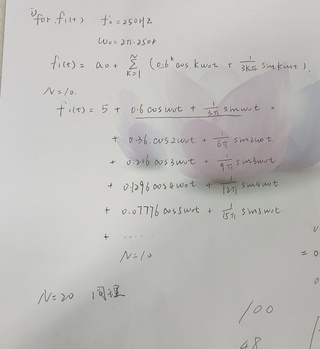 i) for f₁(t) f₀ = 250Hz
ω₀ = 2π·250t
f₁(t) = a₀ + Σ k=1 ∞ (0.6ᵏ cos kω₀t + 1/3kπ sin kω₀t).
N=10.
f₁(t) = 5 + 0.6 cos ω₀t + 1/3π sin ω₀t
+ 0.36 cos 2ω₀t + 1/6π sin 2ω₀t
+ 0.216 cos 3ω₀t + 1/9π sin 3ω₀t
+ 0.1296 cos 4ω₀t + 1/12π sin 4ω₀t
+ 0.07776 cos 5ω₀t + 1/15π sin 5ω₀t
+ .....
N=10
N=20 同理
100
48